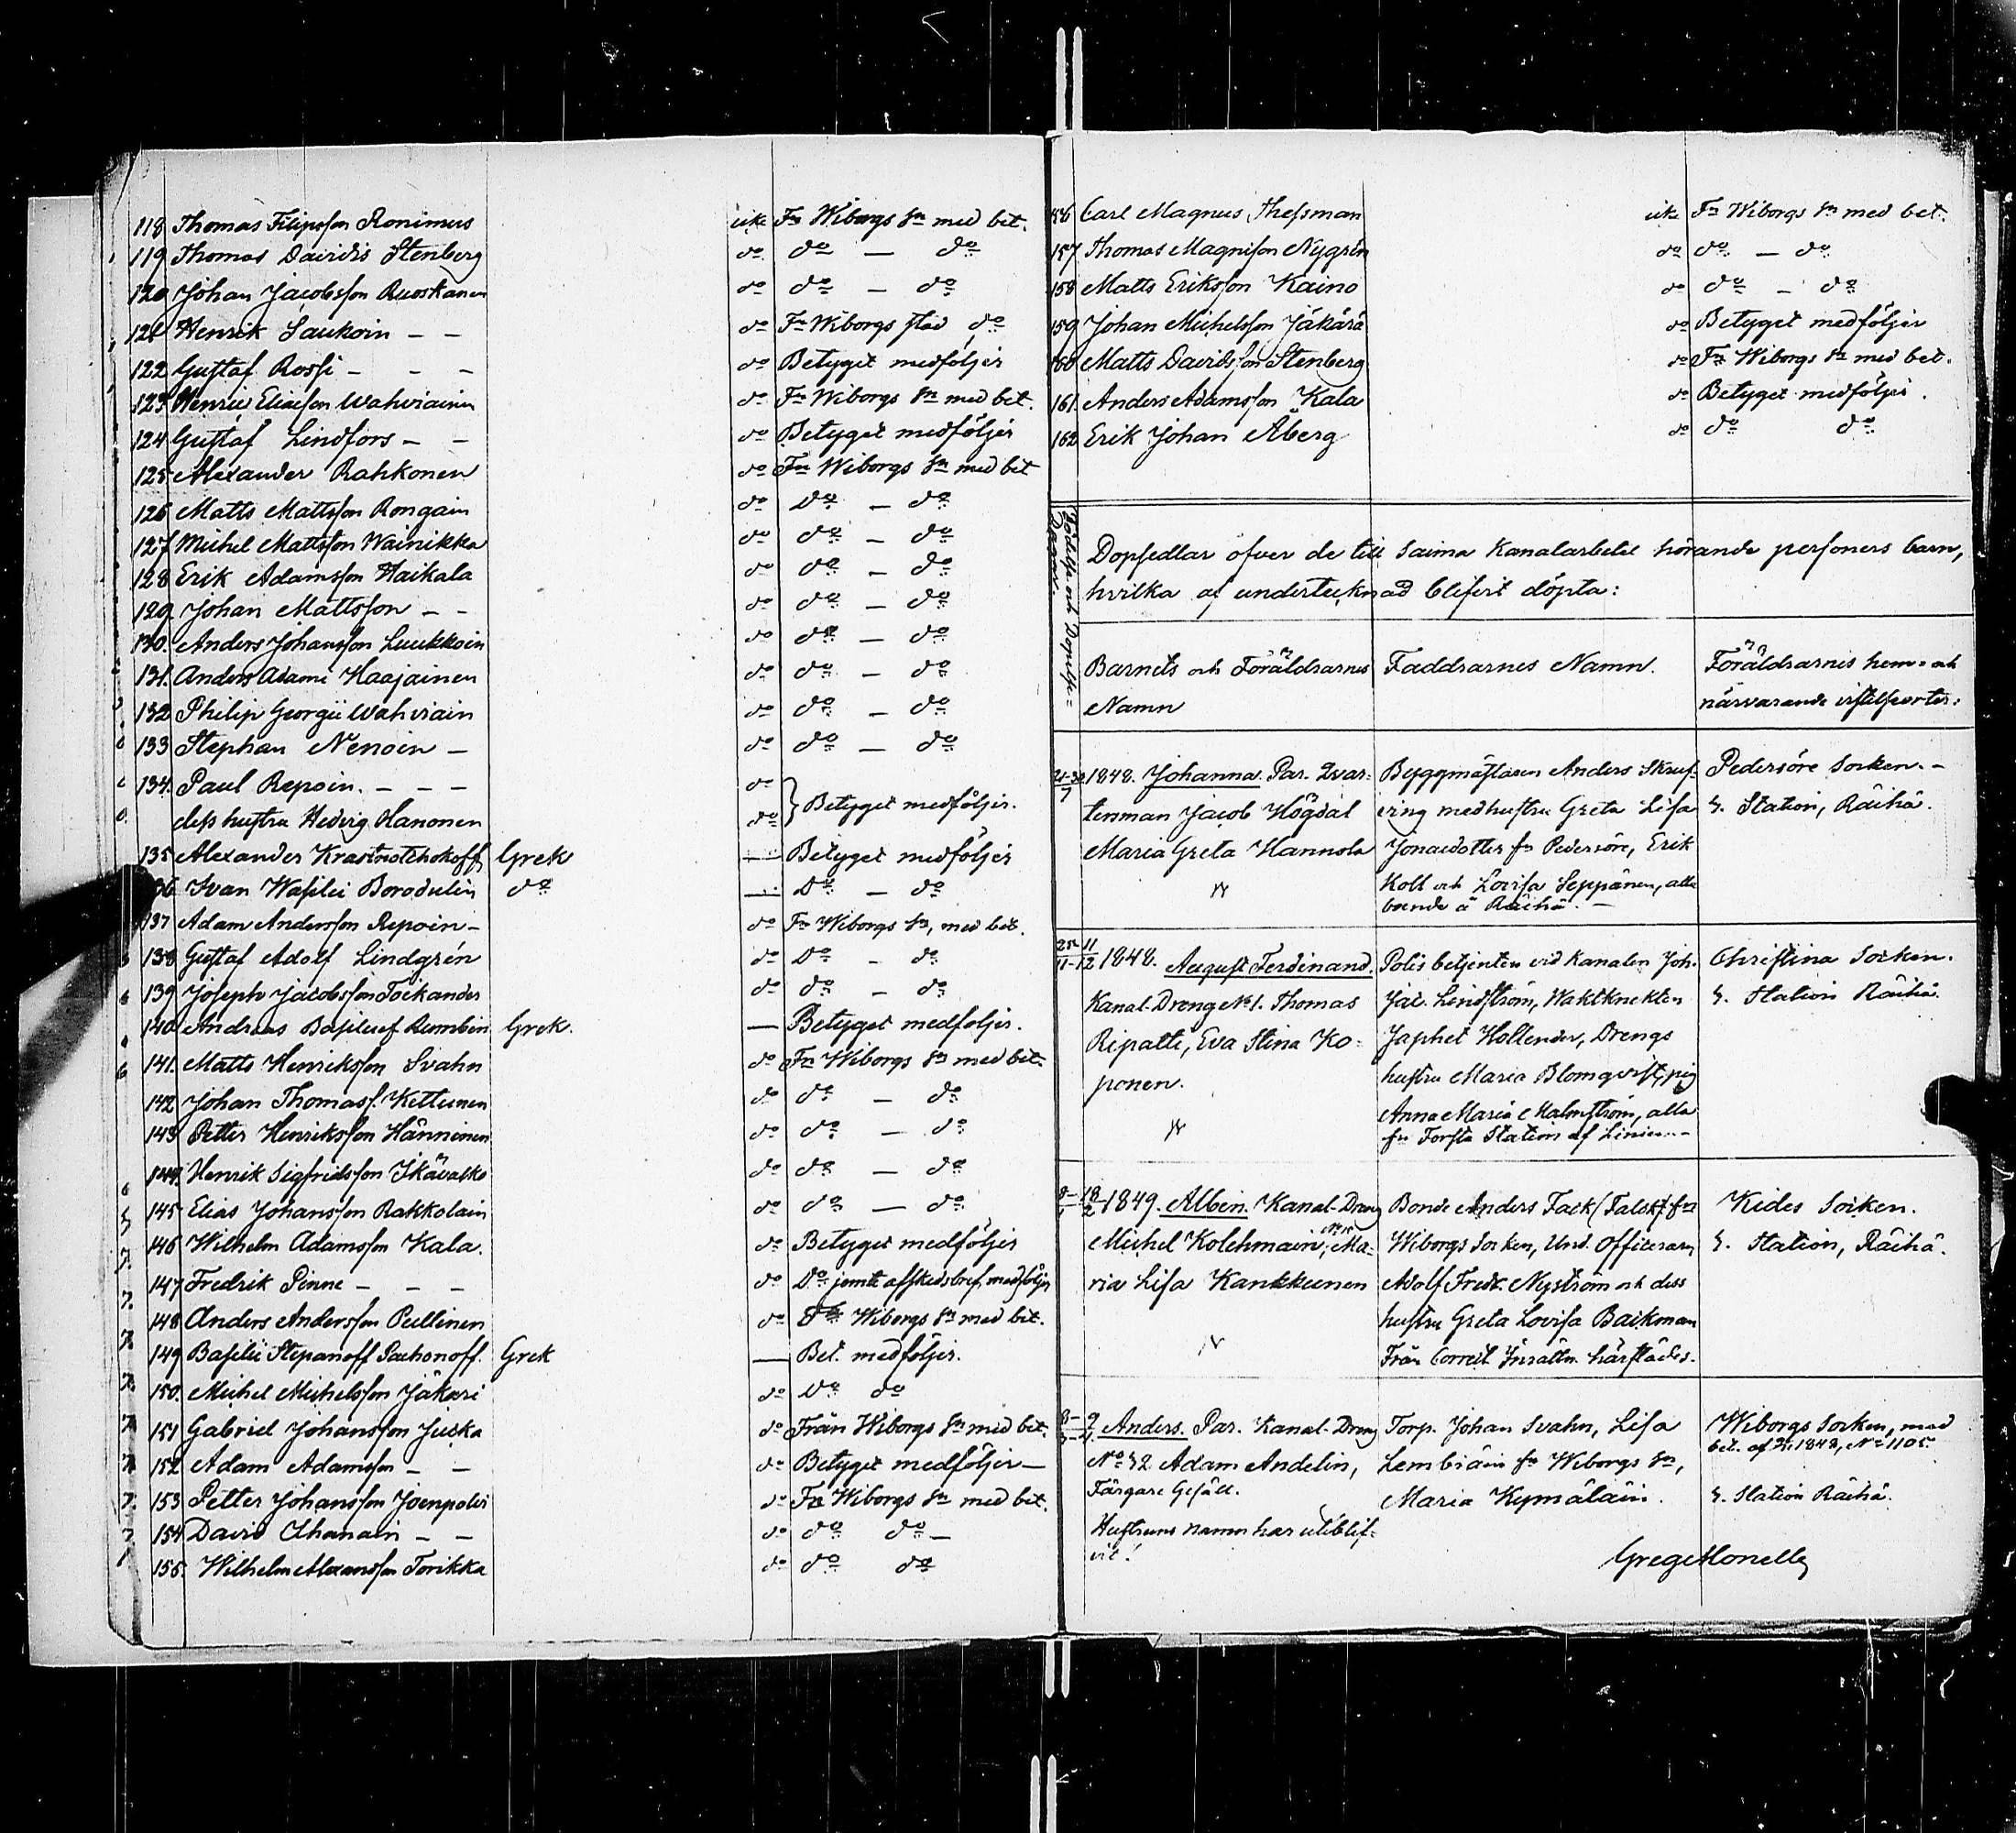 118 Thomas Filipsson Ronimus ut. Fn Wiborgs Sn med bet.
119 Thomas Davidis Stenberg do do — do
120 Johan Jacobsson Ruoskanen do do — do
121 Henrik Saukoin – – do Fn Wiborgs stad, do
122 Gustaf Rossi – – – do Betyget medföljer
123 Henric Eliasson Wahviainen do Fn Wiborgs Sn med bet.
124 Gustaf Lindfors – – do Betyget medföljer
125 Alexander Rahkonen do Fn Wiborgs Sn med bet
126 Matts Mattsson Rongain do Do – do
127 Michel Mattsson Wainikka do do – do
128 Erik Adamsson Haikala do do – do
129. Johan Mattsson – – do do – do
130. Anders Johansson Luukkoin do do — do
131. Anders Adami Kaajainen do do – do
132 Philip Georgii Wahviain do do – do
133 Stephan Nenoin – do do — do
134. Paul Repoin. – – – do
dess hustru Hedvig Hanonen do } Betyget medföljer.
135 Alexander Krastnotchokoff Grek — Betyget medföljer
136 Ivan Wasilei Borodulin do — Do – do
137 Adam Andersson Repoin – do Fn Wiborgs Sn, med bet.
138 Gustaf Adolf Lindgrén do Do – do
139 Joseph Jacobsson Tockander do do – do
140 Andreas Basileief Rumbin Grek. — Betyget medföljer.
141. Matts Henriksson Svahn do Fn Wiborgs Sn med bet.
142 Johan Thomass. Kettunen do do – do
143 Petter Henriksson Hänninen do do — do
144. Henrik Sigfridsson Ikävalko do do — do
145 Elias Johansson Rakkolain do do — do
146 Wilhelm Adamsson Kala. do Betyget medföljer
147 Fredrik Pinne – – – do Do jemte afskedsbref medföljer
148 Anders Andersson Pullinen do Fn Wiborgs Sn med bet.
149 Basilii Stepanoff Pachonoff. Grek — Bet. medföljer.
150. Michel Michelsson Jäkäri do Do do
151 Gabriel Johansson Juska do Från Wiborgs Sn med bet.
152 Adam Adamsson – – do Betyget medföljer —
153 Petter Johansson Joenpolvi do Fn Wiborgs Sn med bet.
154 David Ahanain – – do do do –
155. Wilhelm Alexandsson Torikka do do do
156 Carl Magnus Thessman ut. Fn Wiborgs Sn med bet.
157 Thomas Magnisson Nygrén do do – do
158 Matts Eriksson Kaino do do – do
159 Johan Michelsson Jäkärä do Betyget medföljer
160 Matts Davidsson Stenberg do Fn Wiborgs Sn med bet.
161. Anders Adamsson Kala do Betyget medföljer.
162 Erik Johan Åberg do do do
Födelse och Dopelse=
Dagar.
Dopsedlar öfver de till Saima Kanalarbete hörande personers barn,
hvilka af undertecknad blifvit döpta:
Barnets och Föräldrarnes Namn
Faddrarnes Namn.
Föräldrarnes hem= och
närvarande vistelseorter:
1848. Johanna. Par. Qvar=
tenman Jacob Högdal
Maria Greta Hannola
Byggmästaren Anders Skruf=
ving med hustru Greta Lisa
Jonaedotter fn Pedersöre, Erik
Koll och Lovisa Seppänen, alla
boende å Räihä. —
Pedersöre Socken. –
4. Station, Räihä.
1848. August Ferdinand.
Kanal-Dreng No 1. Thomas
Ripatti, Eva Stina Ko=
ponen.
Polis betjenten vid kanalen Joh.
Jac. Lindström, Vaktknekten
Japhet Hollender, Drengs
hustru Maria Blomqvist, pig
Anna Maria Malmström, alla
fn Forsta Station af Linien. –
Christina Socken.
4. Station Räihä.
1849. Albin. Kanal-Dreng
Michel Kolehmain, Ma=
ria Lisa Kankkunen
Bonde Anders Fack (Falck) fn
Wiborgs Socken, Und. Officeraren
Adolf Fredr. Nyström och dess
hustru Greta Lovisa Backman
Från Correct. Inrättn. härstädes.
Kides Socken.
4. Station, Räihä.
Anders. Par. Kanal-Dreng
No 42 Adam Andelin,
Färgare Gesäll.
Hustruns namn har uteblif=
vit!
Torp. Johan Svahn, Lisa
Lembiäin fn Wiborgs Sn,
Maria Kymäläin.
Wiborgs Socken, med
bet. af 1848, No 1105.
4. Station Räihä.